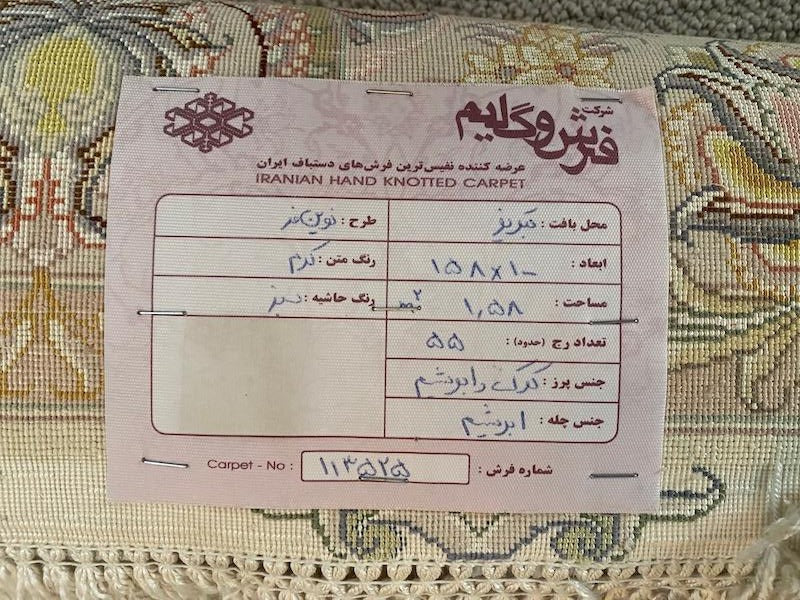 شرکت
فرش و گلیم
عرضه کننده نفیس‌ترین فرش‌های دستباف ایران
IRANIAN HAND KNOTTED CARPET
محل بافت : تبریز
طرح : نوین فر
ابعاد : ۱۵۸×۱۰۰
رنگ متن : کرم
مساحت : ۱,۵۸
رنگ حاشیه : سبز
تعداد رج (حدود) : ۵۵
جنس پرز : کرک و ابریشم
جنس چله : ابریشم
شماره فرش : ۱۱۳۵۲۵ Carpet - No :